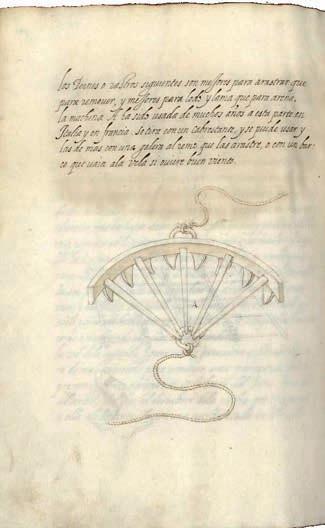 los Peines o rastros siguientes son mejores para arrastrar que
para remouer, y mejores para lodo y lama que para arena,
la machina A ha sido usada de muchos años a esta parte en
Italia y en francia. Setira con un Cabrestante, y se puede usar y
las de mas con una galera al remo que las arrastre, o con un bar
co que uaia ala vela si ouiere buen viento.
A